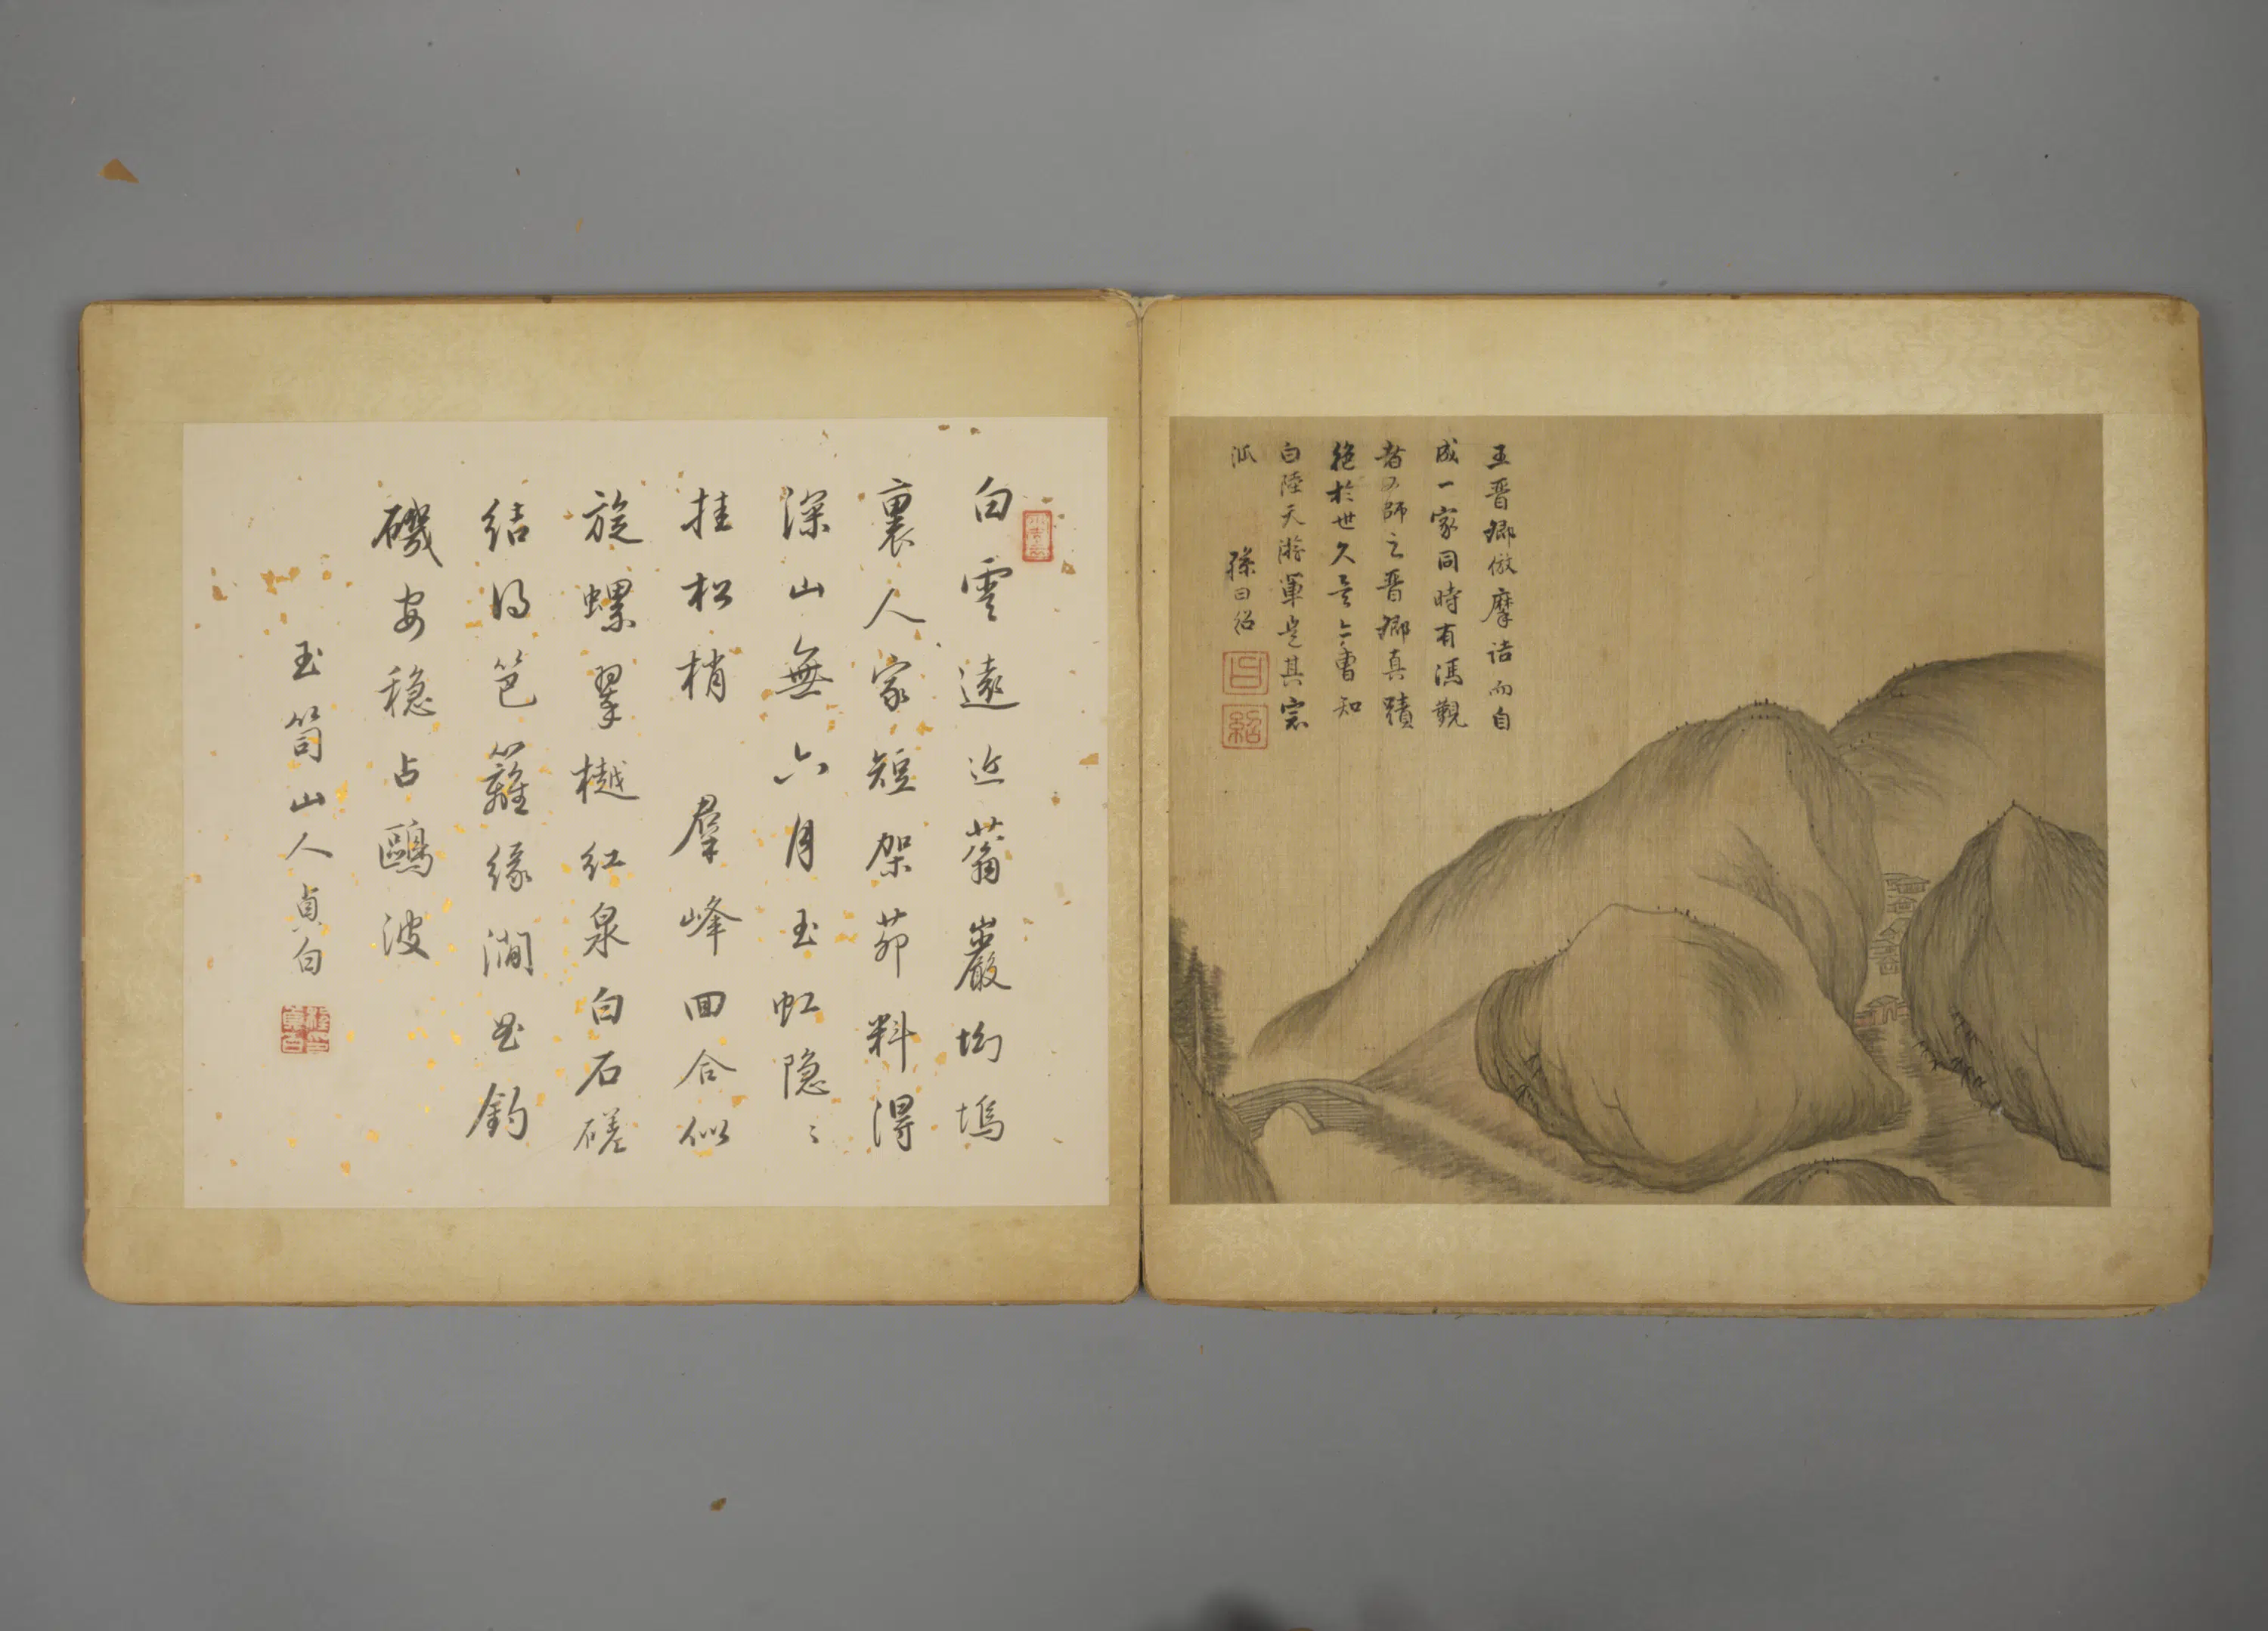 王晋卿倣摩诘而自
成一家同時有馮覲
者亦師之晋卿真蹟
絶於世久矣亦曾知
白陸天游軍是其宗
派
孫曰绍
白雲遠近蓊巖坳塢
裏人家短架茆料得
深山無六月玉虹隐〻
挂松梢 羣峰回合似
旋螺翠樾红泉白石磋
结得笆籬缘澗曲釣
磯安穏占鷗波
玉笥山人貞白